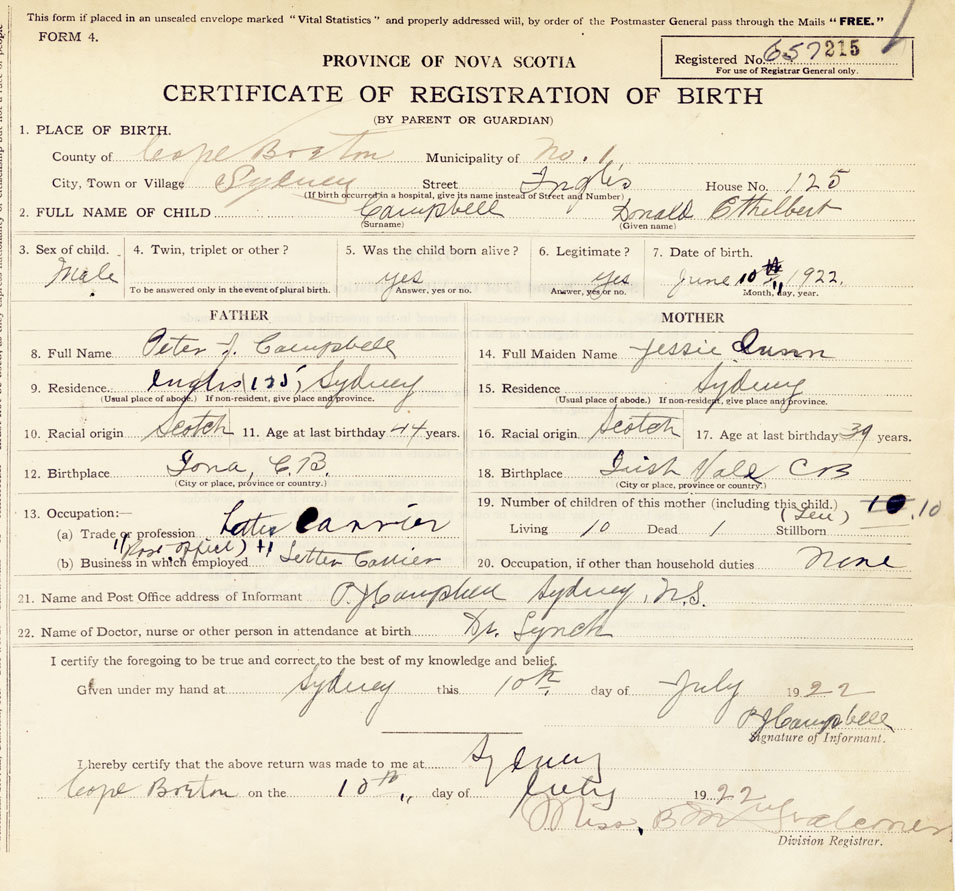 This form if placed in an unsealed envelope marked "Vital Statistics" and properly addressed will, by order of the Postmaster General pass through the Mails "FREE."
FORM 4.
Registered No. 657215
For use of Registrar General only.
PROVINCE OF NOVA SCOTIA
CERTIFICATE OF REGISTRATION OF BIRTH
(BY PARENT OR GUARDIAN)
1. PLACE OF BIRTH.
County of Cape Breton Municipality of No. 1
City, Town or Village Sydney Street Inglis House No. 125
(If birth occurred in a hospital, give its name instead of Street and Number)
2. FULL NAME OF CHILD Campbell Donald Ethelbert
(Surname) (Given name)
3. Sex of child. 4. Twin, triplet or other? 5. Was the child born alive? 6. Legitimate? 7. Date of birth.
Male yes yes June 10th 1922.
To be answered only in the event of plural birth. Answer, yes or no. Answer, yes or no. Month, day, year.
FATHER MOTHER
8. Full Name Peter J. Campbell 14. Full Maiden Name Jessie
9. Residence. Inglis 125, Sydney 15. Residence Sydney
(Usual place of abode.) If non-resident, give place and province. (Usual place of abode.) If non-resident, give place and province.
10. Racial origin Scotch 11. Age at last birthday 44 years. 16. Racial origin Scotch 17. Age at last birthday 39 years.
12. Birthplace Iona, C.B. 18. Birthplace Irish Vale CB
(City or place, province or country.) (City or place, province or country.)
13. Occupation:— 19. Number of children of this mother (including this child.) 10 10
(a) Trade or profession Letter Carrier (Ten)
Living 10 Dead 1 Stillborn
"(Post office)
(b) Business in which employed Letter Carrier 20. Occupation, if other than household duties None
21. Name and Post Office address of Informant P.J Campbell Sydney, N.S.
22. Name of Doctor, nurse or other person in attendance at birth Dr. Lynch
I certify the foregoing to be true and correct to the best of my knowledge and belief.
Given under my hand at Sydney this 10th day of July 1922
P J Campbell
Signature of Informant.
I hereby certify that the above return was made to me at Sydney
Cape Breton on the 10th day of July 1922
Miss B
Division Registrar.